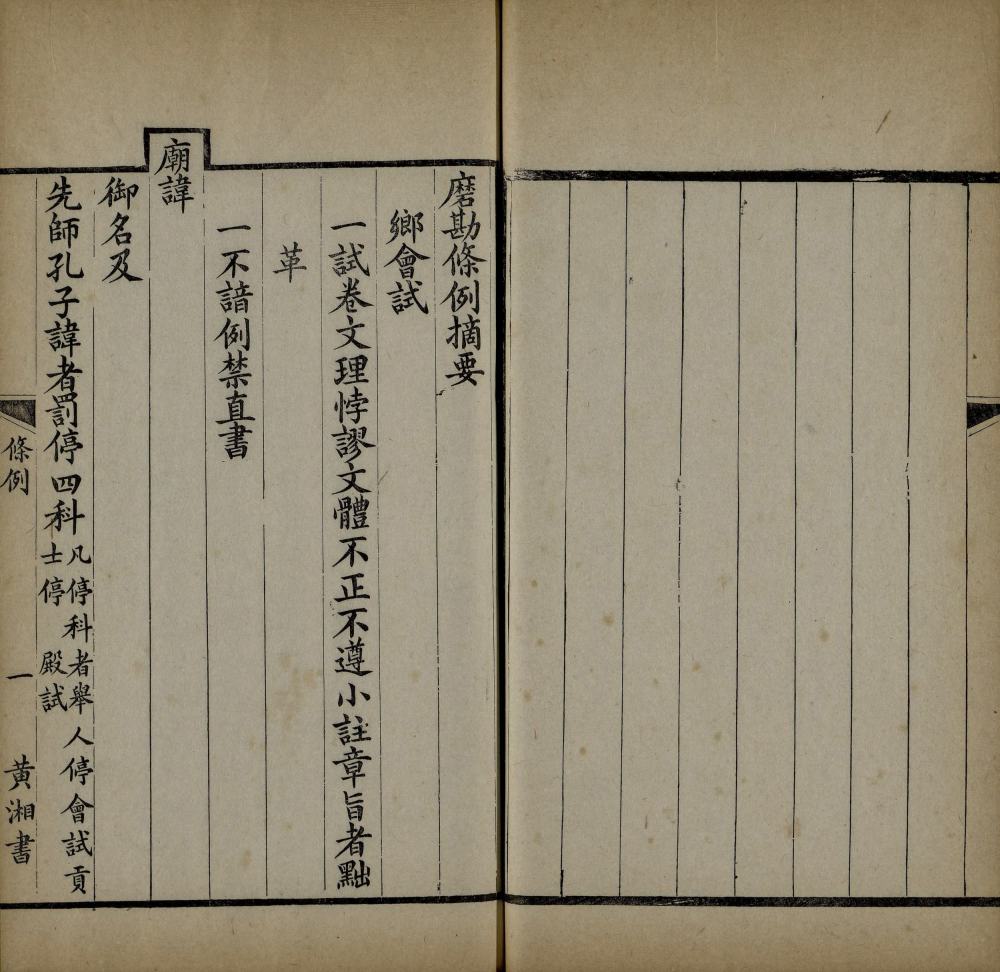 磨勘條例摘要
鄉會試
一試卷文理悖謬文體不正不遵小註章旨者黜
革
一不諳例禁直書
廟諱
御名及
先師孔子諱者罰停四科凡停科者舉人停會試貢
士停殿試
條例 一 黃湘書